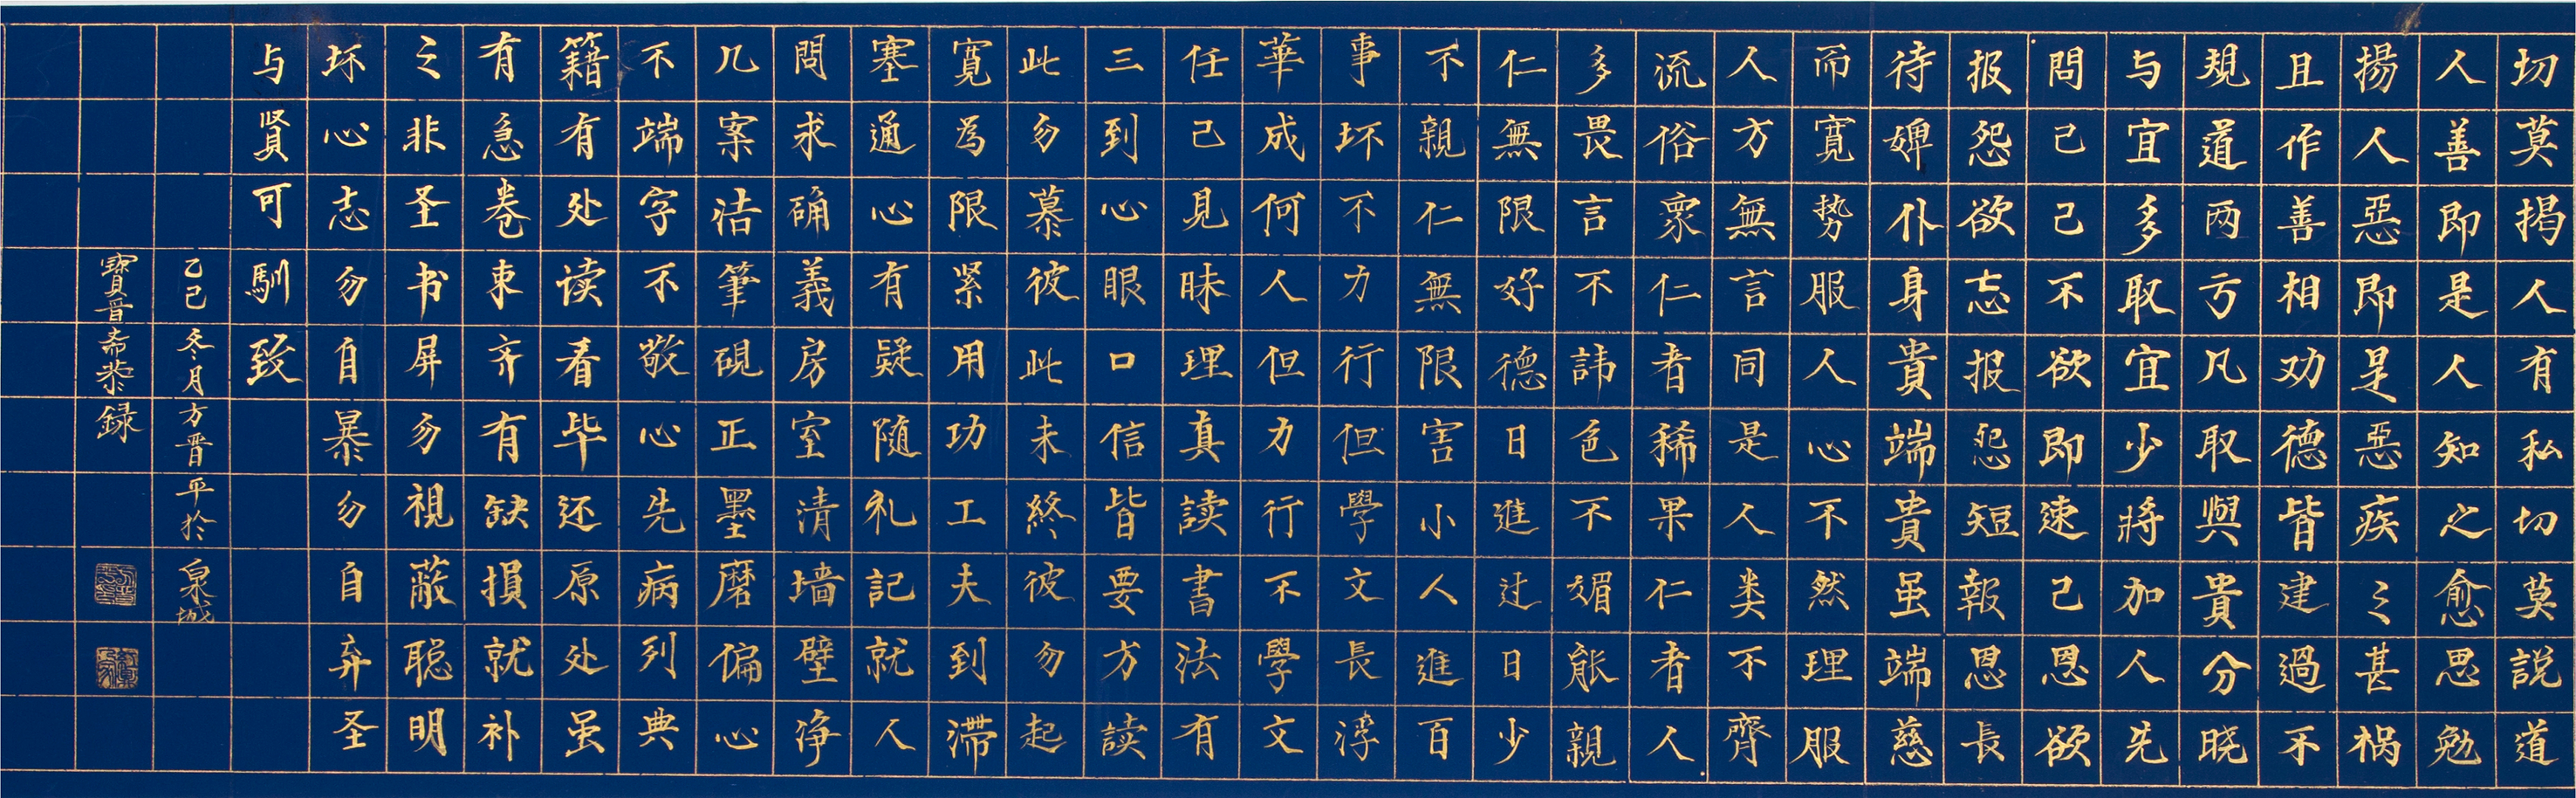 切莫揭人有私切莫説道
人善即是人知之愈思勉
揚人惡即是惡疾々甚祸
且作善相劝德皆建過不
規道两亏凡取與貴分晓
与宜多取宜少將加人先
問己己不欲即速己恩欲
报怨欲忘报怨短報恩長
待婢仆身貴端貴虽端慈
而寛势服人心不然理服
人方無言同是人类不齊
流俗衆仁者稀果仁者人
多畏言不諱色不媚能親
仁無限好德日進过日少
不親仁無限害小人進百
事坏不力行但學文長浮
華成何人但力行不學文
任己見昧理真读書法有
三到心眼口信皆要方读
此勿慕彼此未終彼勿起
寛為限紧用功工夫到滞
塞通心有疑随札記就人
問求确義房室清墙壁净
几案洁筆硯正墨磨偏心
不端字不敬心先病列典
籍有处读看毕还原处虽
有急卷束齐有缺損就补
之非圣书屏勿視蔽聪明
坏心志勿自暴勿自弃圣
与賢可馴致
乙巳冬月方晋平於泉城
寶晋斋恭録